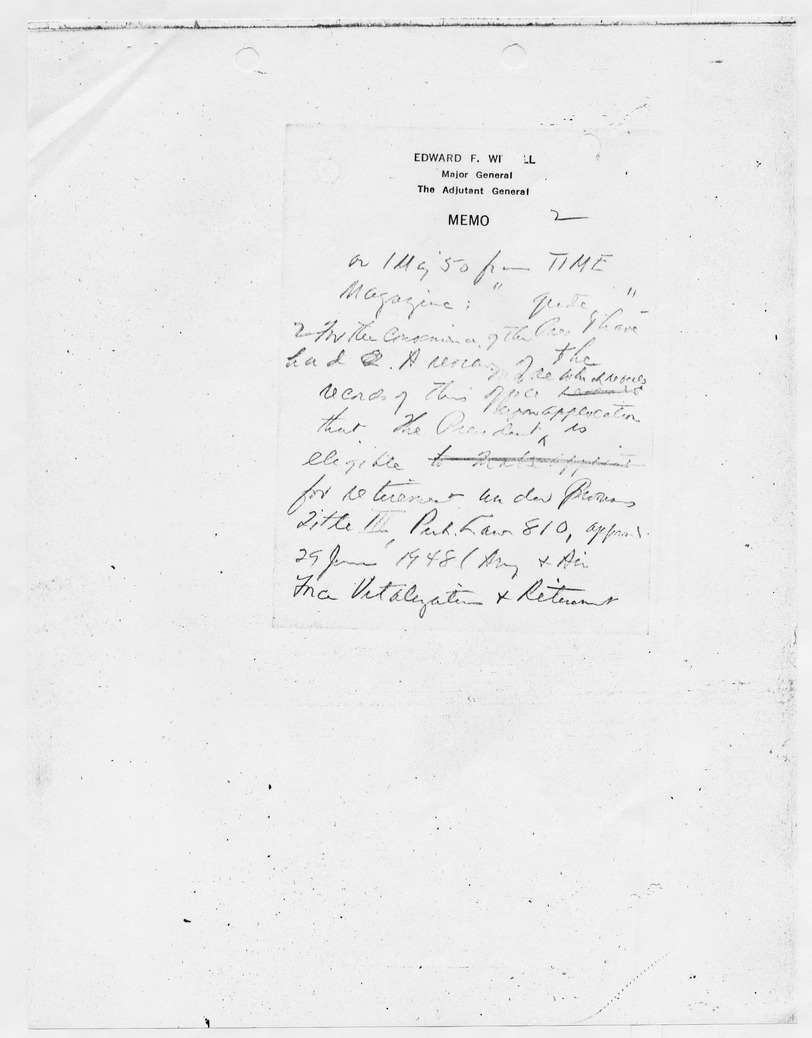 EDWARD F. WI LL
Major General
The Adjutant General
MEMO 2
on 1 May 50 from TIME
Magazine: " quote "
2 For the convenience of the Pres I have
had a. A of the
records of this office
upon application
that the President is
eligible to make
for retirement under Provns
Title III, Pub. Law 810, approv.
29 June 1948 (Army & Air
Force Vitalization & Retirement